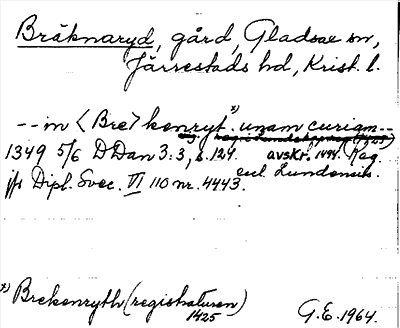 Bräknaryd, gård, Gladsax sn,
Järrestads hd, Krist. l.
-- in <Bre> kenryt *). unam curiam --
1349 5/6 DDan 3:3, s. 124. avskr. 1494. Reg.
eccl. Lundensis.
jfr Dipl. Svec. VI 110 nr. 4443.
*) Brekenryth (registraturen)
1425
G.E. 1964.